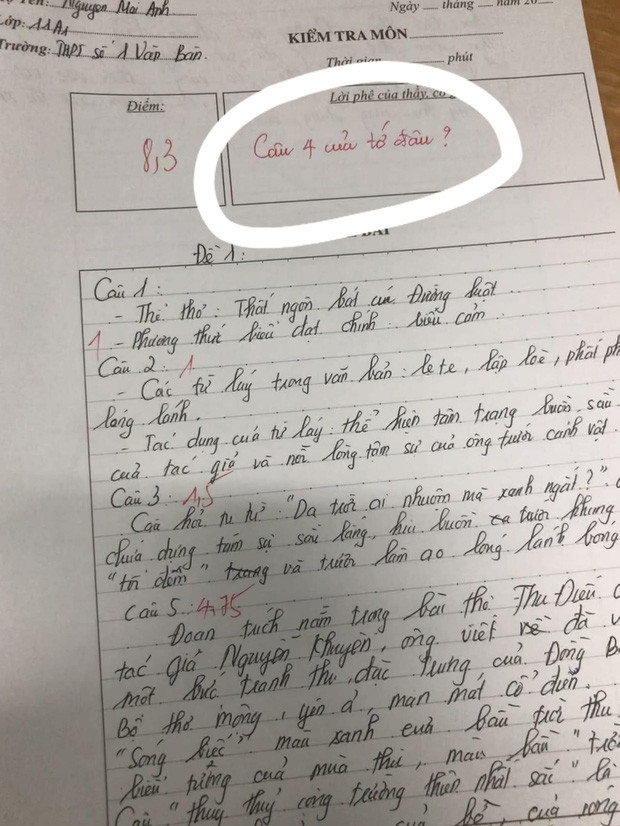 Tên: Nguyen Mai Anh
Lớp: 11A1
Trường: THPT số 1 Văn Bàn.
Ngày tháng năm 20
KIỂM TRA MÔN
Thời gian phút
Điểm:
8,3
Lời phê của thầy, cô
Câu 4 của tớ đâu?
BÀI
Đề 1:
Câu 1:
- Thể thơ: Thất ngôn bát cú Đường luật
1 - Phương thức biểu đạt chính: biểu cảm
Câu 2: 1
- Các từ láy trong văn bản: le te, lập loè, phất ph
lóng lánh.
- Tác dụng của từ láy: thể hiện tâm trạng buồn, sầu
của tác giả và nỗi lòng tâm sự của ông trước cảnh vật.
Câu 3: 1,5
Câu hỏi tu từ: "Da trời ai nhuộm mà xanh ngắt?"
chứa đựng tâm sự sâu lắng, hiu buồn trước khung
"tối đêm" và trước làn ao lóng lánh bóng
Câu 5: 4,75
Đoạn trích nằm trong bài thơ Thu Điếu
tác giả Nguyễn Khuyến, ông viết về đã v
một bức tranh thu đặc trưng của Đồng B
Bộ thơ mộng, yên ả, man mát cổ điển.
"Sóng biếc" màu xanh của bầu trời thu
biểu tượng của mùa thu, màu
"thuỷ cộng trường thiên nhất sắc" là